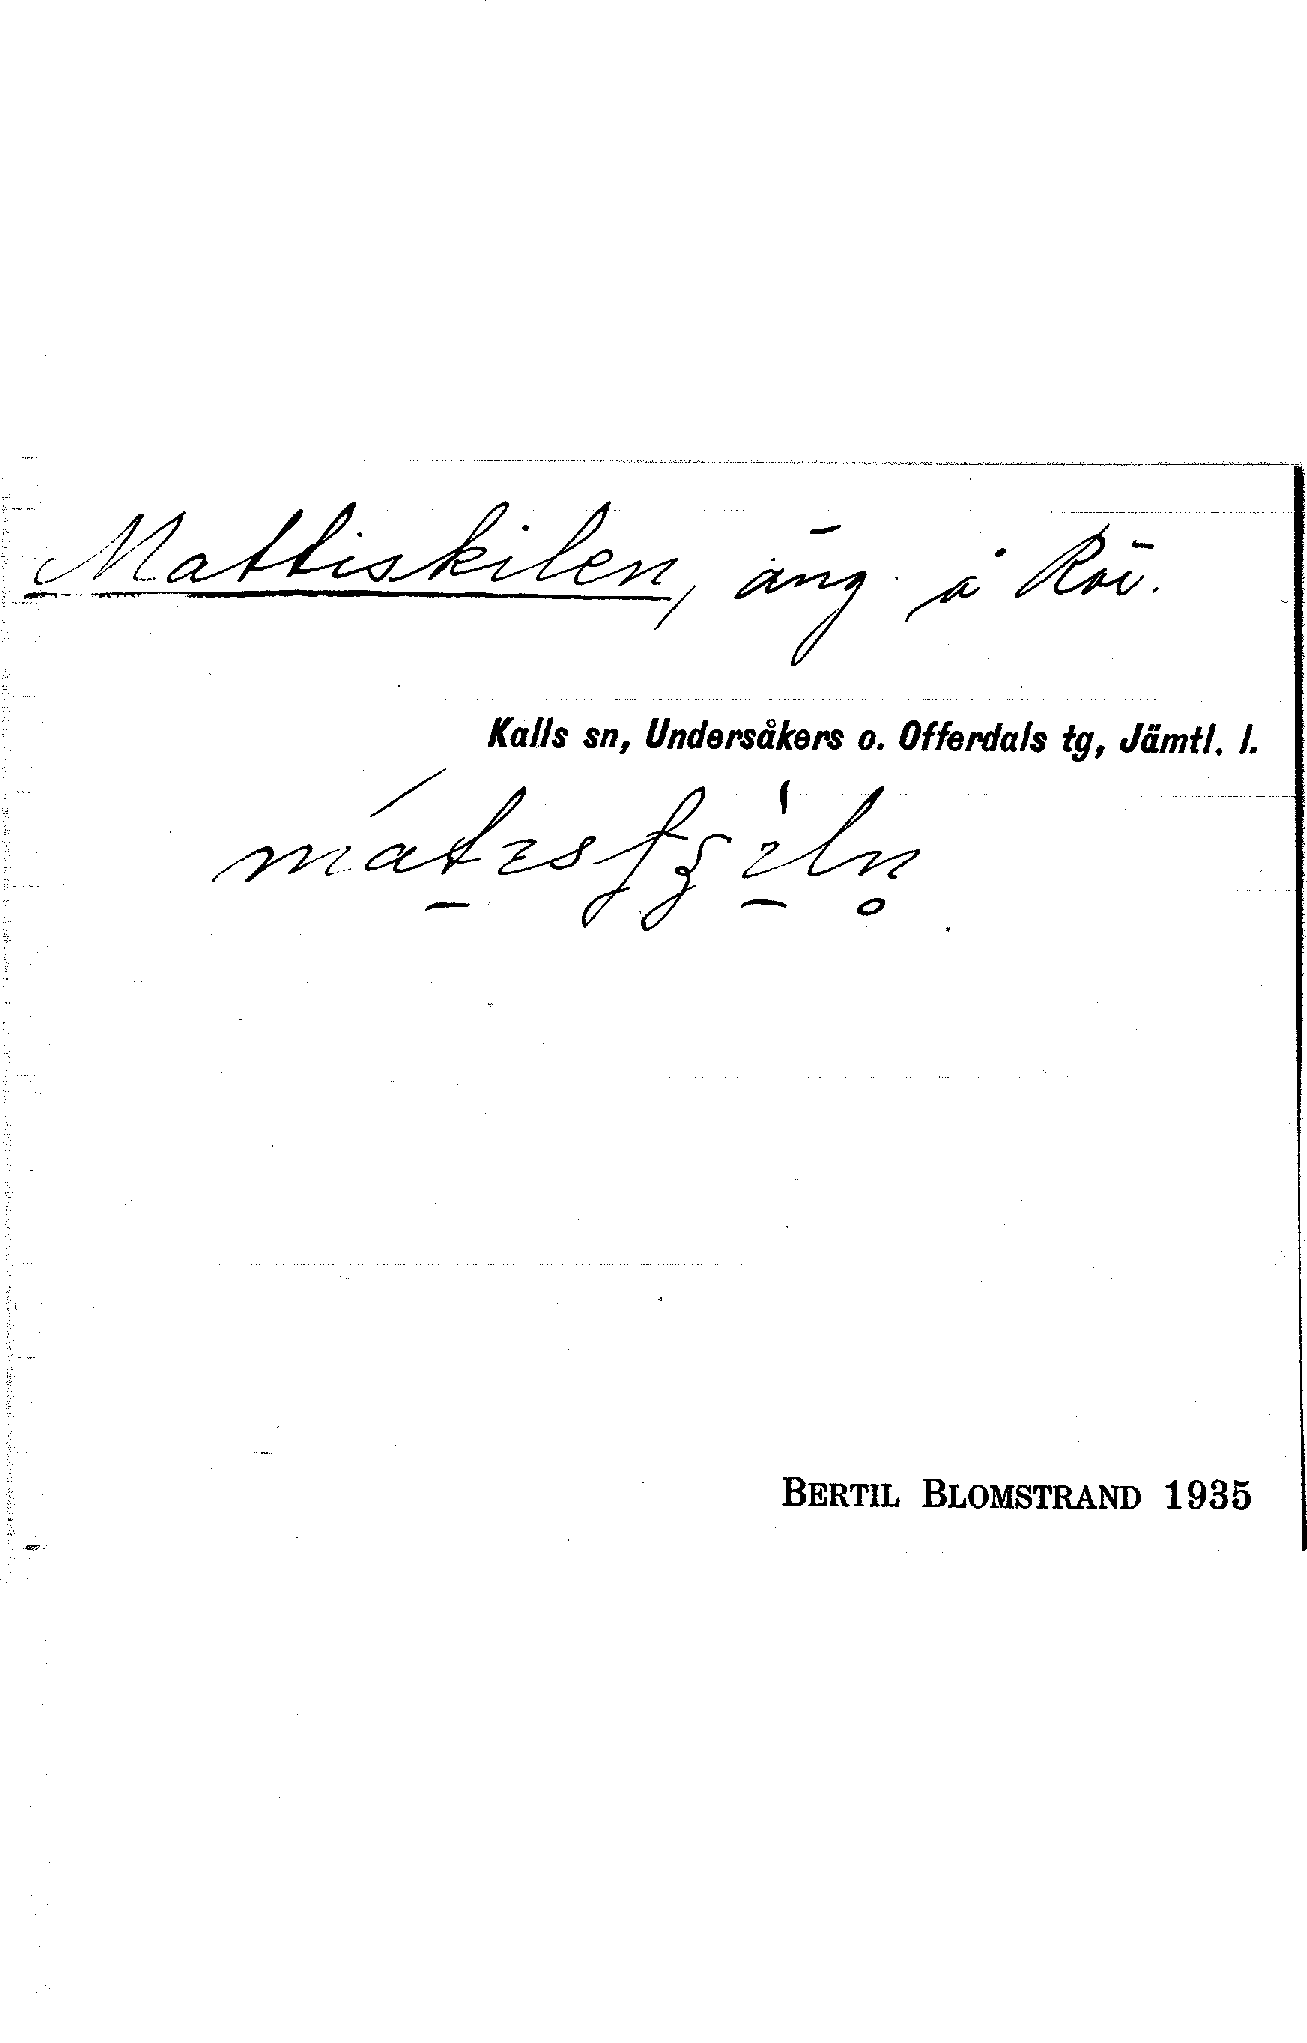 Mattiskilen, äng å Röv.
Kalls sn, Undersåkers o. Offerdals tg, Jämtl. l.
BERTIL BLOMSTRAND 1935